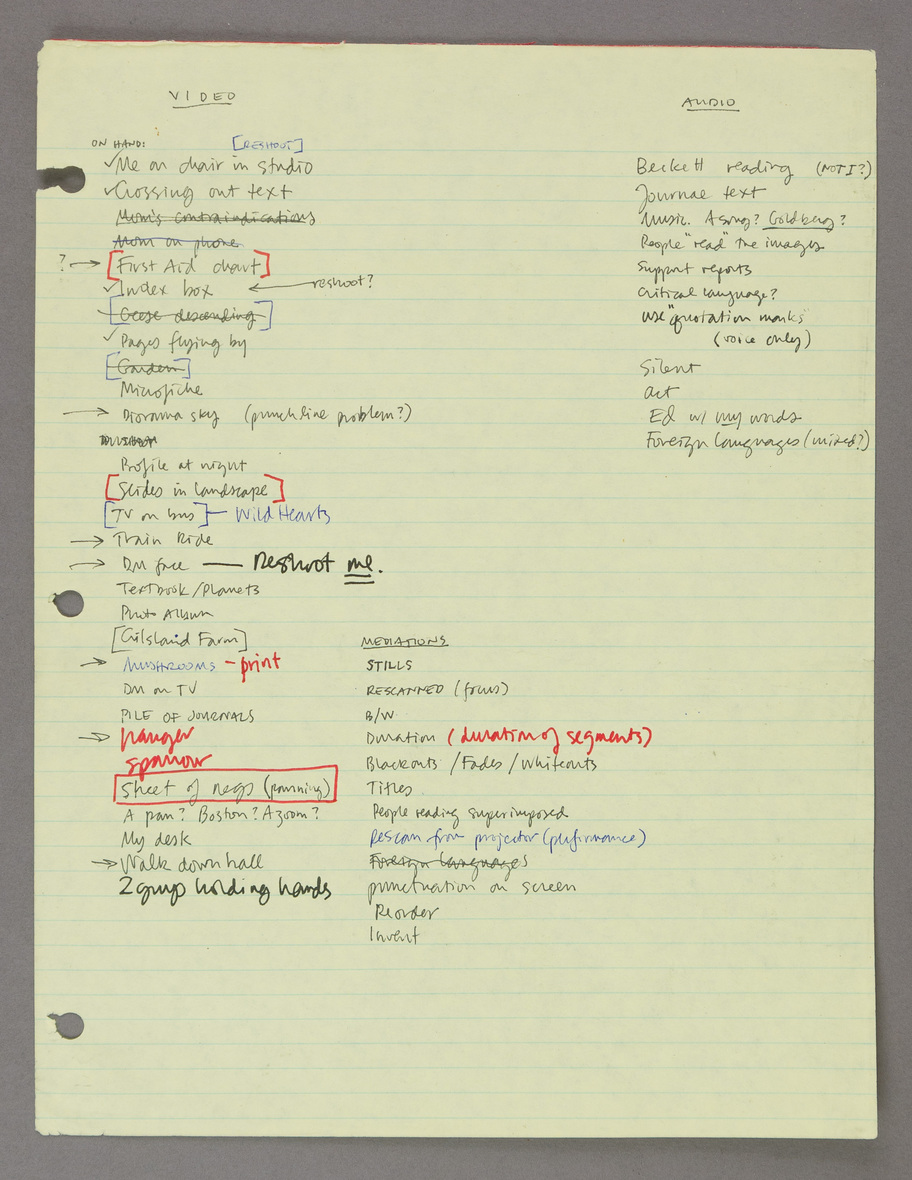 VIDEO
ON HAND: [RESHOOT]
✓Me on chair in studio
✓Crossing out text
Mom's contraindications
Mom on phone
? → [First Aid chart]
✓Index box ← reshoot?
[Geese descending]
✓Pages flying by
[Garden]
Microfiche
→ Diorama sky (punchline problem?)
Profile at night
[Slides in landscape]
[TV on bus] — Wild Hearts
→ Train Ride
→ DM face — Reshoot me.
Textbook/Planets
Photo Album
[Gilsland Farm]
→ MUSHROOMS – print
DM on TV
PILE OF JOURNALS
→ hanger
sparrow
Sheet of negs (panning)
A pan? Boston? A zoom?
My desk
→ Walk down hall
2 guys holding hands
MEDIATIONS
STILLS
RESCANNED (focus)
B/W
Duration (duration of segments)
Blackouts /Fades /Whiteouts
Titles
People reading superimposed
Rescan from projector (performance)
Foreign Languages
punctuation on screen
Reorder
Invent
AUDIO
Beckett reading (NOT I?)
Journal text
Music. A song? Goldberg?
People "read" the images
Support reports
Critical language?
use "quotation marks"
(voice only)
Silent
act
Ed w/ my words
Foreign Languages (mixed?)